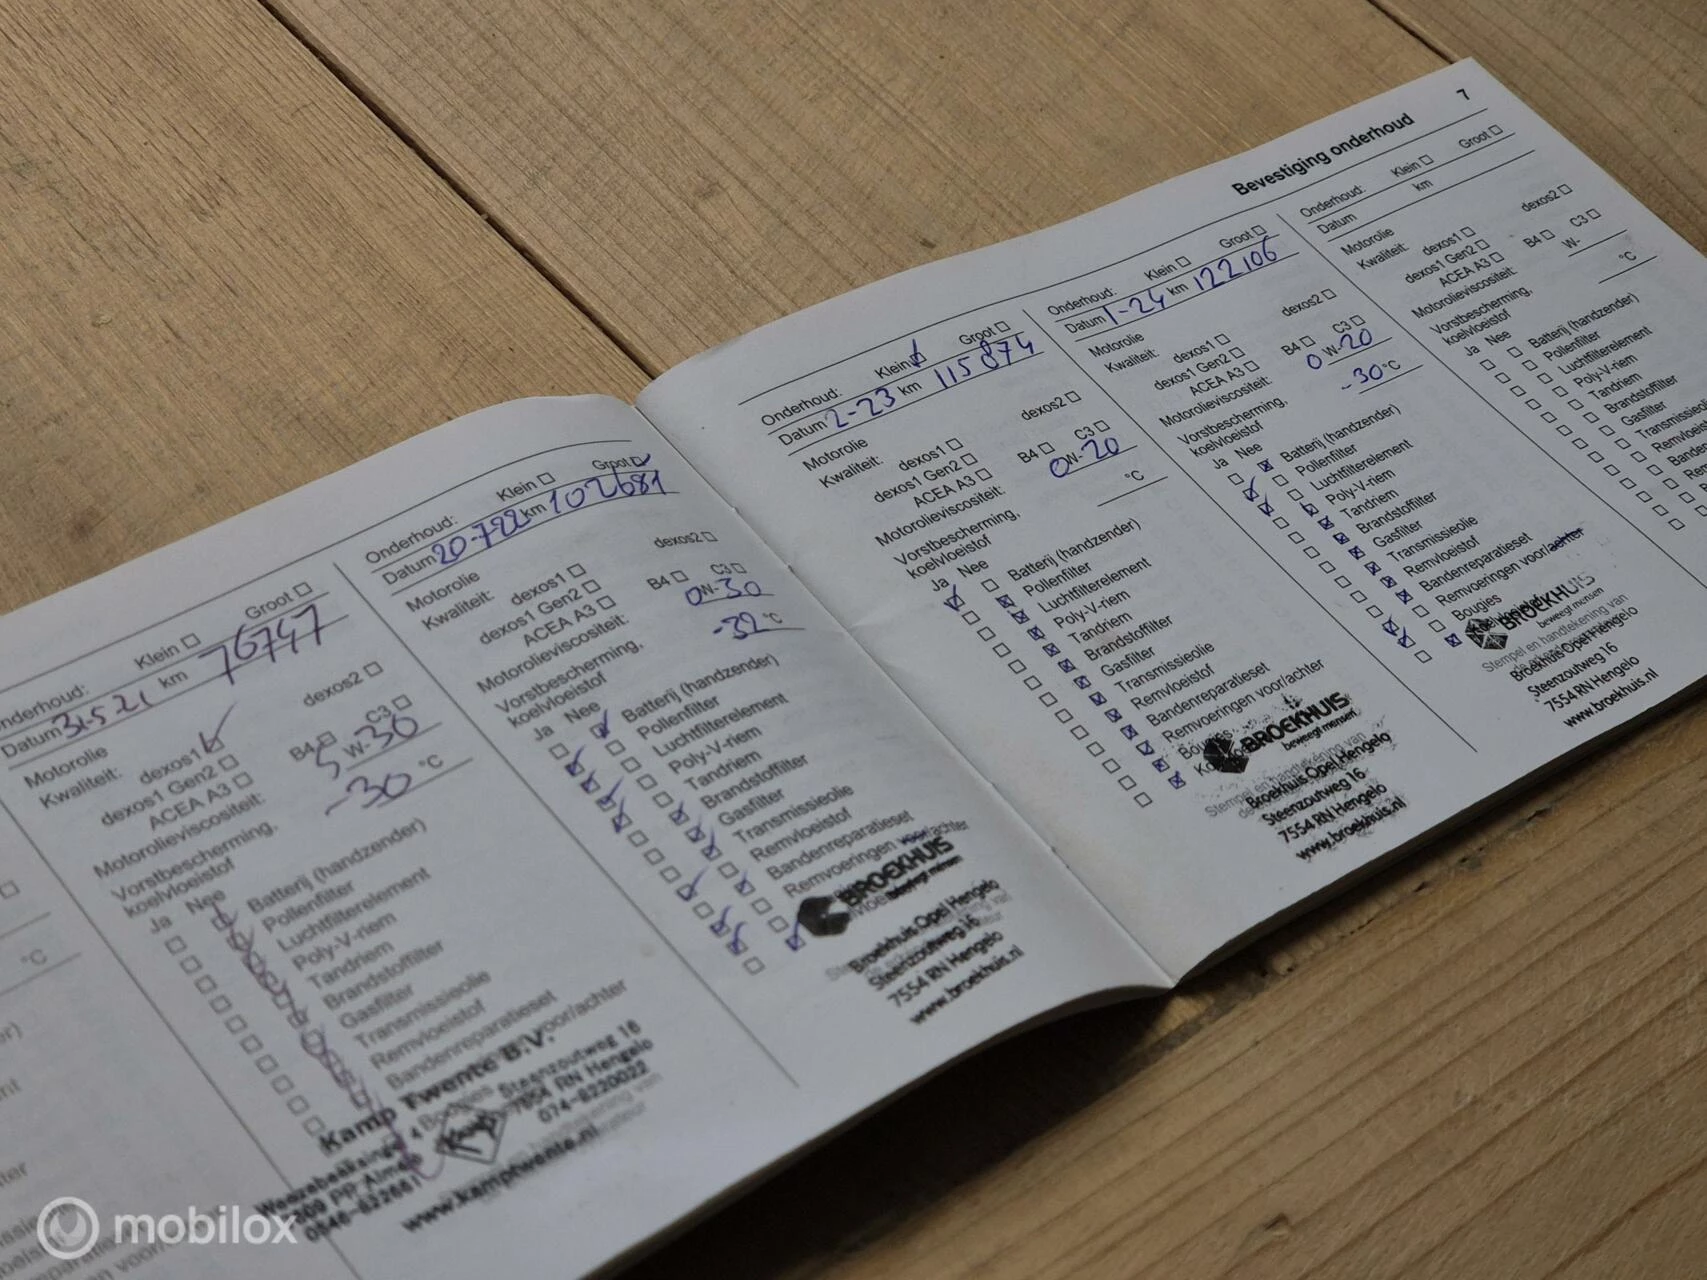 7
Bevestiging onderhoud
Onderhoud: Klein Groot
Datum 31-5 21 km 76747
Motorolie
Kwaliteit: dexos1 dexos2
dexos1 Gen2
ACEA A3 B4 C3
Motorolieviscositeit: 5 W-30
Vorstbescherming,
koelvloeistof -30 °C
Ja Nee
Batterij (handzender)
Pollenfilter
Luchtfilterelement
Poly-V-riem
Tandriem
Brandstoffilter
Gasfilter
Transmissieolie
Remvloeistof
Bandenreparatieset
voor/achter
Kamp Twente B.V.
Steenzoutweg 16
7554 RN Hengelo
074-8220022
www.kamptwente.nl
Onderhoud: Klein Groot
Datum 20-722 km 102681
Motorolie
Kwaliteit: dexos1 dexos2
dexos1 Gen2
ACEA A3 B4 C3
Motorolieviscositeit: 0W-30
Vorstbescherming,
koelvloeistof -32 °C
Ja Nee
Batterij (handzender)
Pollenfilter
Luchtfilterelement
Poly-V-riem
Tandriem
Brandstoffilter
Gasfilter
Transmissieolie
Remvloeistof
Bandenreparatieset
Remvoeringen voor/achter
BROEKHUIS
beweegt mensen
Broekhuis Opel Hengelo
Steenzoutweg 16
7554 RN Hengelo
www.broekhuis.nl
Onderhoud: Klein Groot
Datum 2-23 km 115874
Motorolie
Kwaliteit: dexos1 dexos2
dexos1 Gen2
ACEA A3 B4 C3
Motorolieviscositeit: 0W-20
Vorstbescherming,
koelvloeistof °C
Ja Nee
Batterij (handzender)
Pollenfilter
Luchtfilterelement
Poly-V-riem
Tandriem
Brandstoffilter
Gasfilter
Transmissieolie
Remvloeistof
Bandenreparatieset
Remvoeringen voor/achter
Bougies
BROEKHUIS
beweegt mensen
Broekhuis Opel Hengelo
Steenzoutweg 16
7554 RN Hengelo
www.broekhuis.nl
Onderhoud: Klein Groot
Datum 1-24 km 122106
Motorolie
Kwaliteit: dexos1 dexos2
dexos1 Gen2
ACEA A3 B4 C3
Motorolieviscositeit: 0 W-20
Vorstbescherming,
koelvloeistof -30 °C
Ja Nee
Batterij (handzender)
Pollenfilter
Luchtfilterelement
Poly-V-riem
Tandriem
Brandstoffilter
Gasfilter
Transmissieolie
Remvloeistof
Bandenreparatieset
Remvoeringen voor/achter
Bougies
BROEKHUIS
beweegt mensen
Stempel en handtekening van
Broekhuis Opel Hengelo
Steenzoutweg 16
7554 RN Hengelo
www.broekhuis.nl
Onderhoud: Klein Groot
Datum km
Motorolie
Kwaliteit: dexos1 dexos2
dexos1 Gen2
ACEA A3 B4 C3
Motorolieviscositeit: W-
Vorstbescherming,
koelvloeistof °C
Ja Nee
Batterij (handzender)
Pollenfilter
Luchtfilterelement
Poly-V-riem
Tandriem
Brandstoffilter
Gasfilter
Transmissieolie
mobilox